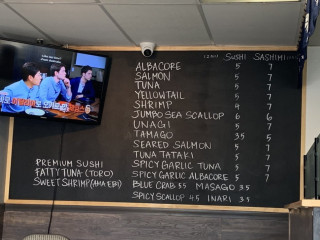 (2pc) SUSHI SASHIMI
ALBACORE 5 7
SALMON 5 7
TUNA 5 7
YELLOWTAIL 5 7
SHRIMP 7
JUMBO SEA SCALLOP 6 6
UNAGI 5 7
TAMAGO 3.5 5
SEARED SALMON 5 7
TUNA TATAKI 5 7
SPICY GARLIC TUNA 5 7
SPICY GARLIC ALBACORE 5 7
BLUE CRAB 5.5 MASAGO 3.5
SPICY SCALLOP 4.5 INARI 3.5
PREMIUM SUSHI
FATTY TUNA (TORO)
SWEET SHRIMP (AMA EBI)